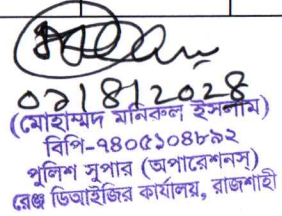 ০১/৪/২০২৪
(মোহাম্মদ মনিরুল ইসলাম)
বিপি-৭৪০৫১০৪৮৯২
পুলিশ সুপার (অপারেশনস্)
রেঞ্জ ডিআইজির কার্যালয়, রাজশাহী